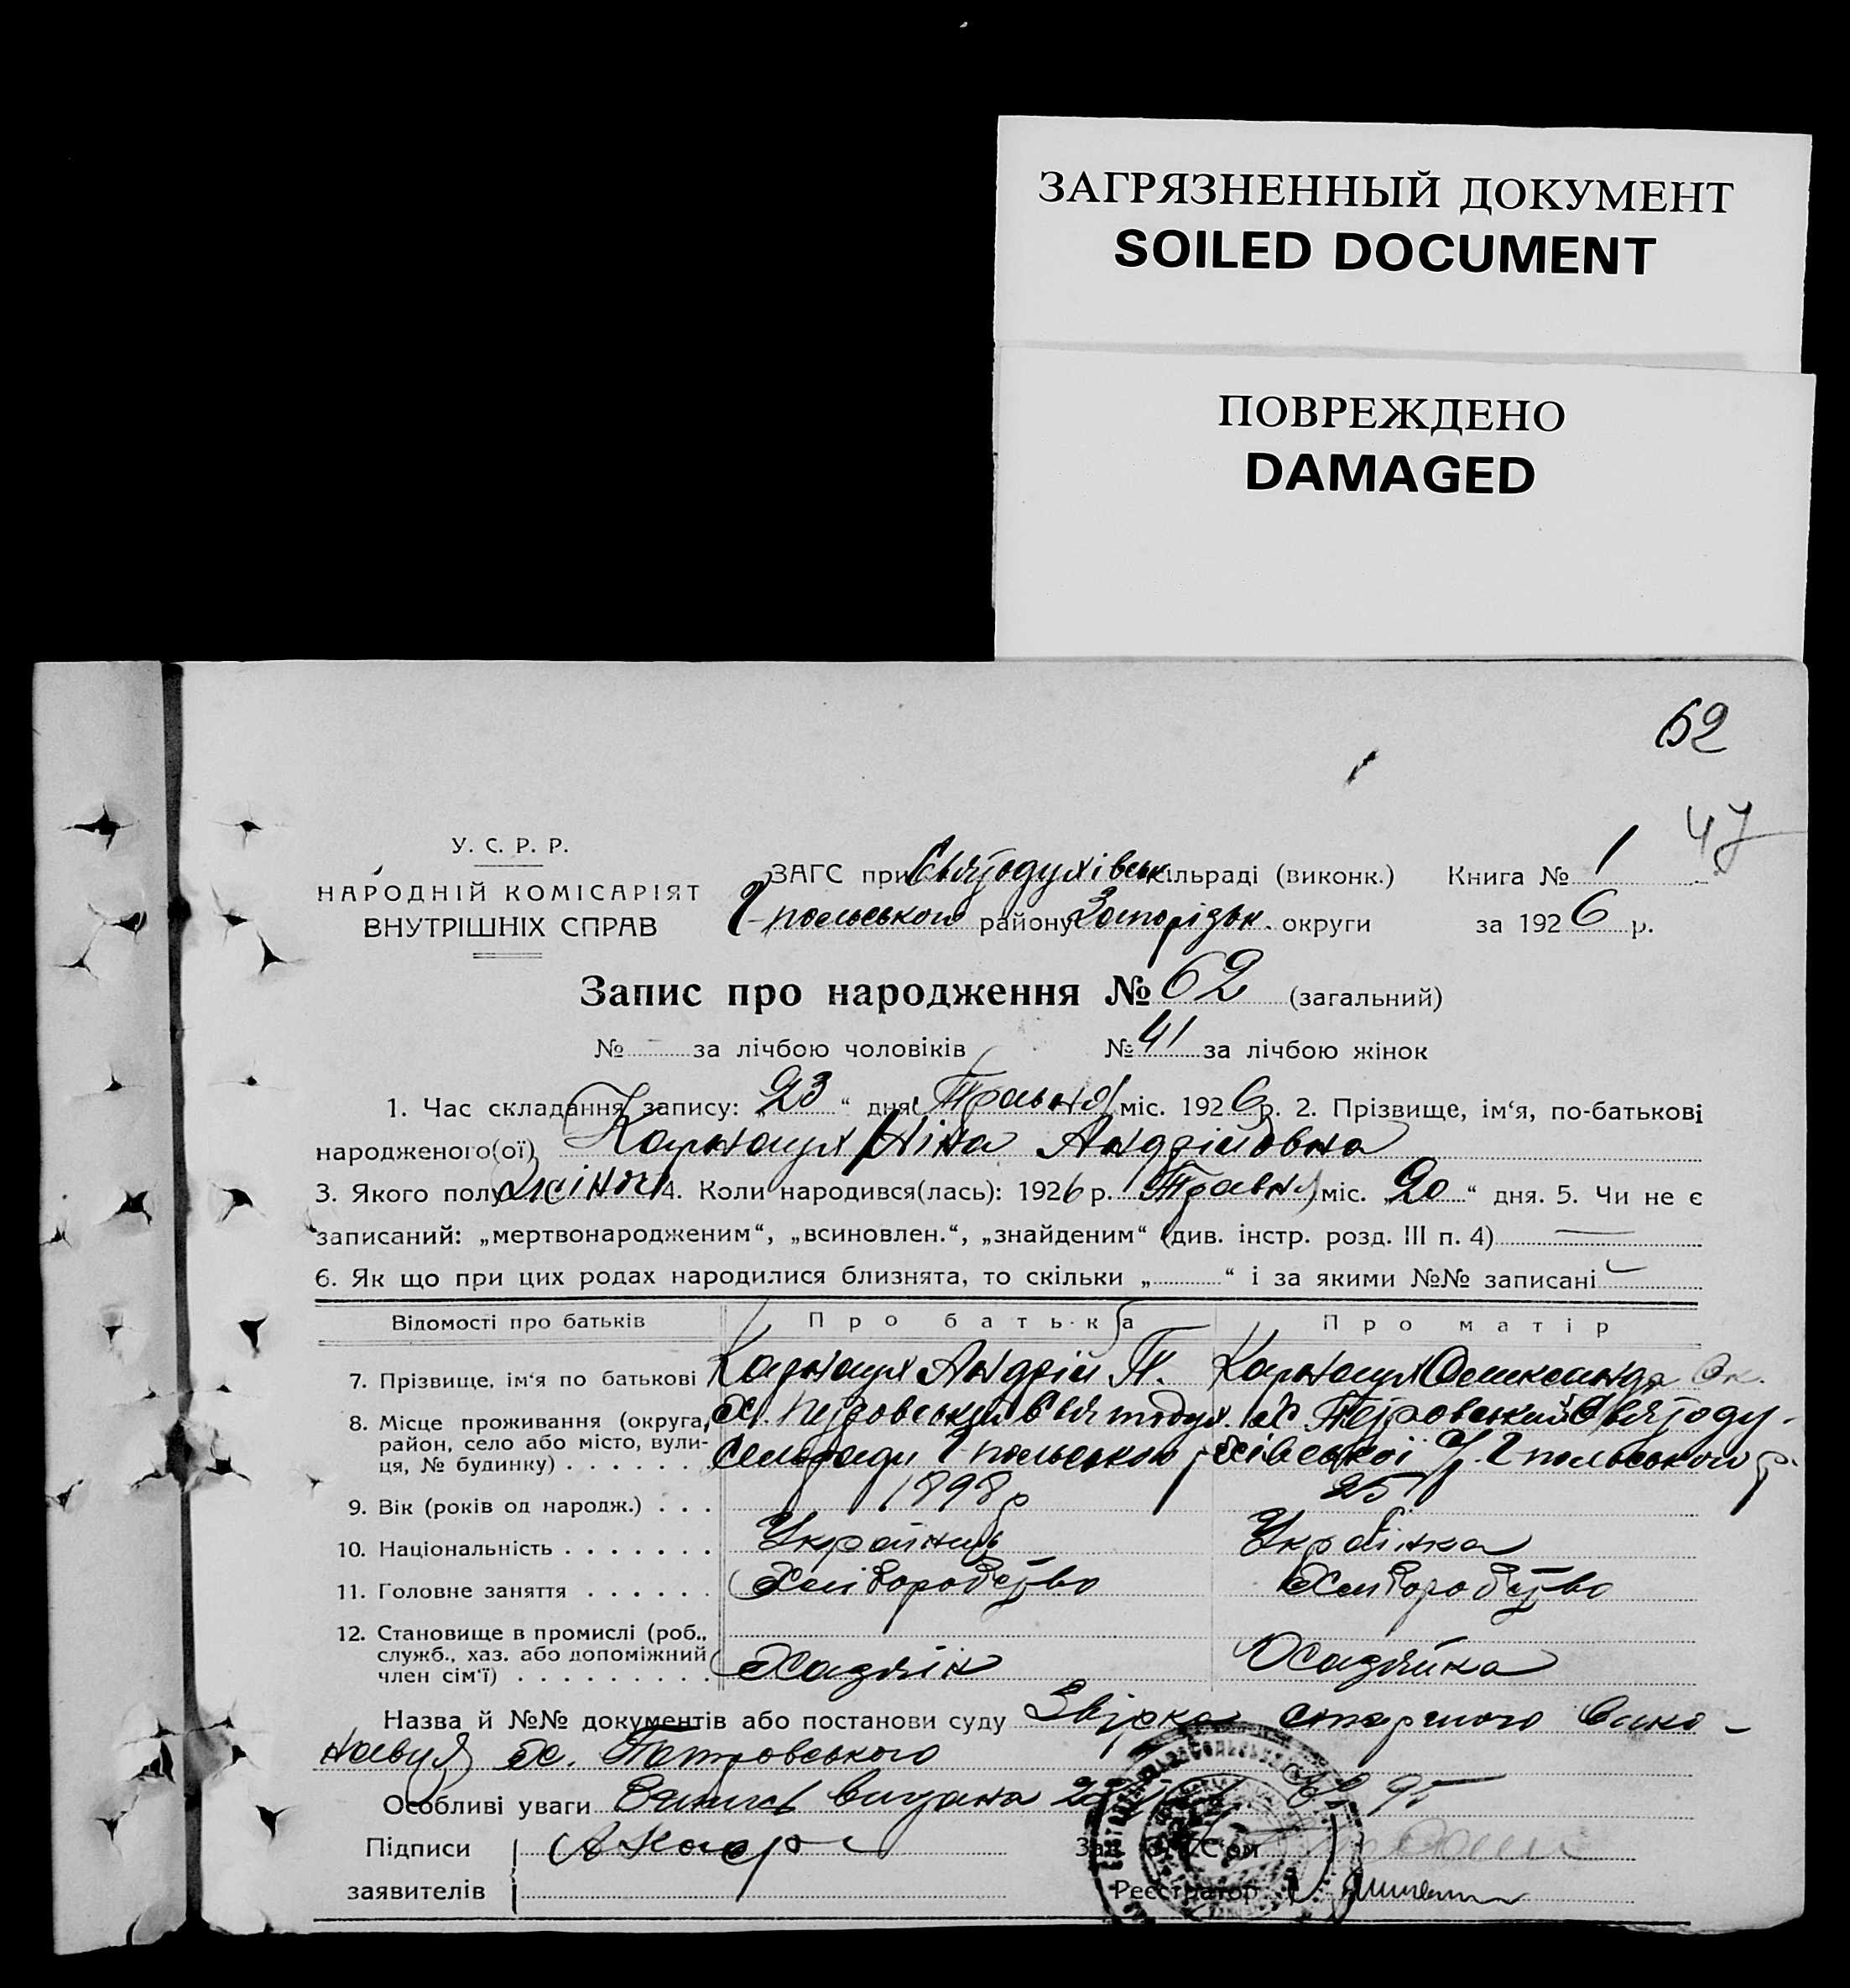 ЗАГРЯЗНЕННЫЙ ДОКУМЕНТ
SOILED DOCUMENT
ПОВРЕЖДЕНО
DAMAGED
62
47
У. С. Р. Р.
НАРОДНІЙ КОМІСАРІЯТ
ВНУТРІШНІХ СПРАВ
ЗАГС при Святодухівськ. сільраді (виконк.) Книга № 1
Г-польського району Запорізьк. округи за 1926 р.
Запис про народження № 62 (загальний)
№ - за лічбою чоловіків № 41 за лічбою жінок
1. Час складання запису: „23“ дня Травня міс. 1926 р. 2. Прізвище, ім‘я, по-батькові
народженого(ої) Карнаух Ніна Андрійовна
3. Якого полу жіноч 4. Коли народився(лась): 1926 р. Травня міс. „20“ дня. 5. Чи не є
записаний: „мертвонародженим“, „всиновлен.“, „знайденим“ (див. інстр. розд. III п. 4) —
6. Як що при цих родах народилися близнята, то скільки „ “ і за якими №№ записані
Відомості про батьків Про батька Про матір
7. Прізвище, ім‘я по батькові Карнаух Андрій П. Карнаух Олександр Як.
8. Місце проживання (округа, х. Петровський Святодух. х. Петровський Святоду-
район, село або місто, вули- сельради Г-польського р. хівської с/р. Г-польського р.
ця, № будинку)
9. Вік (років од народж.) 1898 р 25
10. Національність Українець Українка
11. Головне заняття Хліборобство Хліборобство
12. Становище в промислі (роб.,
служб., хаз. або допоміжний Хазяїн Хазяйка
член сім‘ї)
Назва й №№ документів або постанови суду Звірка старшого вико-
навця х. Петровського
Особливі уваги Випись видана № 95
Підписи А Кар Зав. ЗАГС‘ом
заявителів Реєстратор